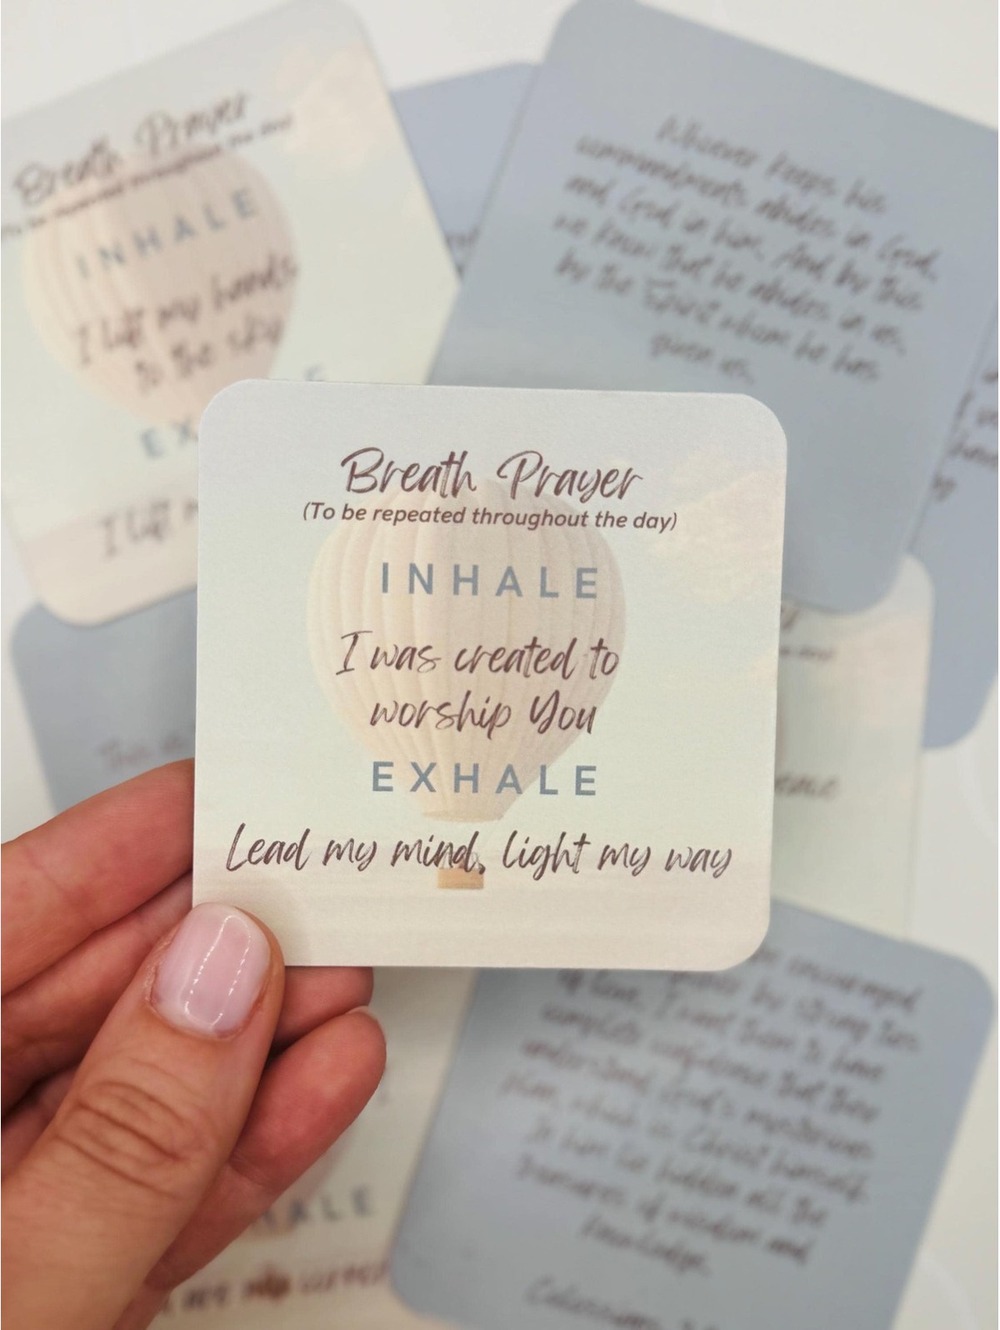 Breath Prayer
(To be repeated throughout the day)
INHALE
I lift my hands
to the sky
EX
I lift m
Whoever keeps his
commandments abides in God,
and God in him. And by this
we know that he abides in us,
by the Spirit whom he has
given us.
Breath Prayer
(To be repeated throughout the day)
INHALE
I was created to
worship You
EXHALE
Lead my mind, light my way
encouraged
by strong ties
of love. I want them to have
complete confidence that they
understand God's mysterious
plan, which is Christ himself.
In him lie hidden all the
treasures of wisdom and
knowledge.
Colossians
HALE
are my